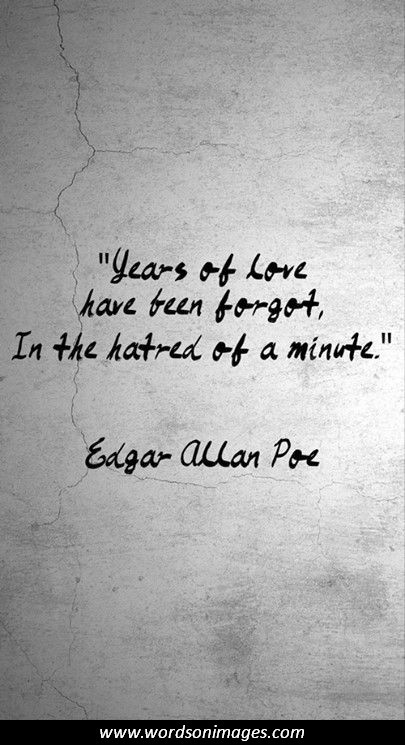 "Years of Love
have been forgot,
In the hatred of a minute."
Edgar Allan Poe
www.wordsonimages.com